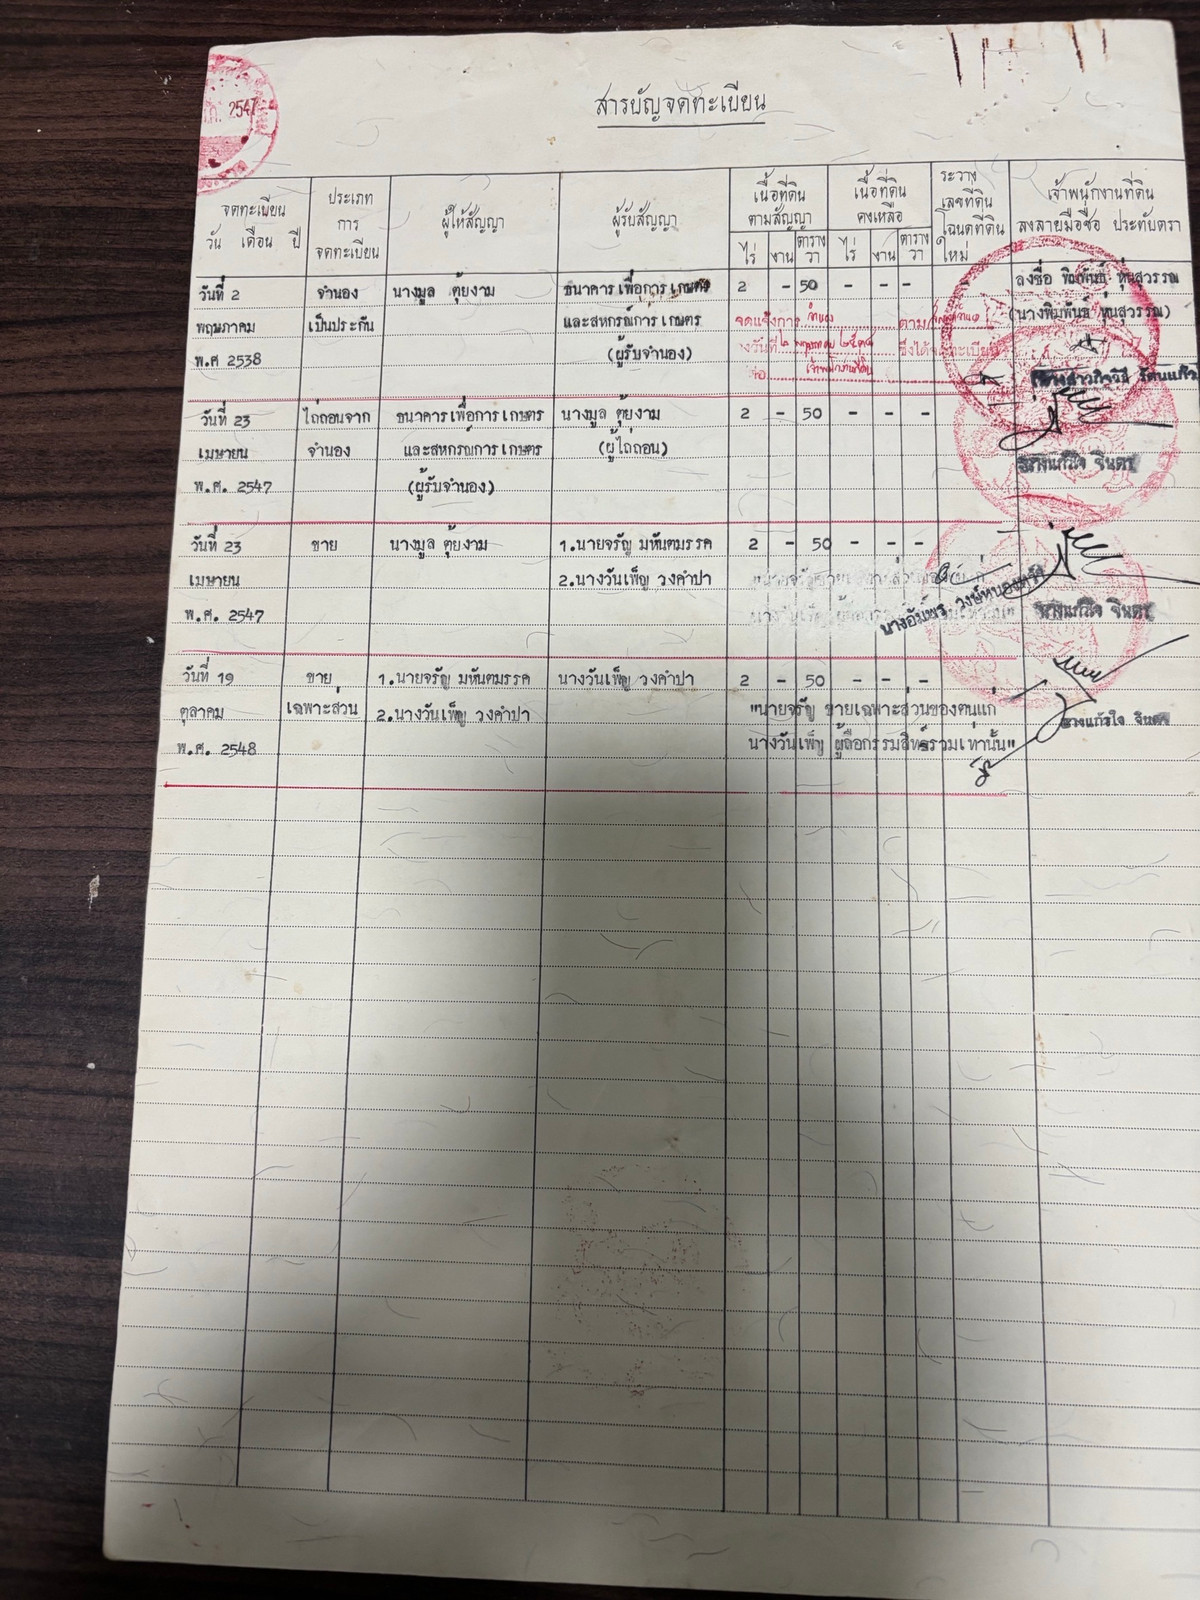 2547
สารบัญจดทะเบียน
จดทะเบียน
วัน เดือน ปี
ประเภท
การ
จดทะเบียน
ผู้ให้สัญญา
ผู้รับสัญญา
เนื้อที่ดิน
ตามสัญญา
ไร่ งาน ตารางวา
เนื้อที่ดิน
คงเหลือ
ไร่ งาน ตารางวา
ระวาง
เลขที่ดิน
โฉนดที่ดิน
ใหม่
เจ้าพนักงานที่ดิน
ลงลายมือชื่อ ประทับตรา
วันที่ 2 จำนอง นางมูล ตุ้ยงาม ธนาคารเพื่อการเกษตร 2 - 50 - - - ลงชื่อ พิมพันธ์ หุ่นสุวรรณ
พฤษภาคม เป็นประกัน และสหกรณ์การเกษตร จดแจ้งการ จำนอง ตาม (นางพิมพันธ์ หุ่นสุวรรณ)
พ.ศ 2538 (ผู้รับจำนอง)
วันที่ 23 ไถ่ถอนจาก ธนาคารเพื่อการเกษตร นางมูล ตุ้ยงาม 2 - 50 - - -
เมษายน จำนอง และสหกรณ์การเกษตร (ผู้ไถ่ถอน) นางแก้วใจ จินดา
พ.ศ. 2547 (ผู้รับจำนอง)
วันที่ 23 ขาย นางมูล ตุ้ยงาม 1.นายจรัญ มหันตมรรค 2 - 50 - - -
เมษายน 2.นางวันเพ็ญ วงคำปา
พ.ศ. 2547 นางอัมพร วงษ์หนองหว้า นางแก้วใจ จินดา
วันที่ 19 ขาย 1.นายจรัญ มหันตมรรค นางวันเพ็ญ วงคำปา 2 - 50 - - -
ตุลาคม เฉพาะส่วน 2.นางวันเพ็ญ วงคำปา "นายจรัญ ขายเฉพาะส่วนของตนแก่ นางแก้วใจ จินดา
พ.ศ. 2548 นางวันเพ็ญ ผู้ถือกรรมสิทธิ์รวมเท่านั้น"